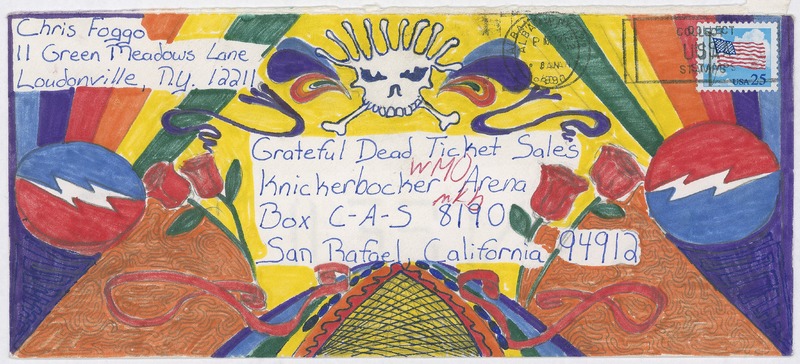 Chris Foggo
11 Green Meadows Lane
Loudonville, N.Y. 12211
COLLECT
USA
STAMPS
USA 25
Grateful Dead Ticket Sales
WMO
Knickerbocker Arena
mkb
Box C-A-S 8190
San Rafael California 94912